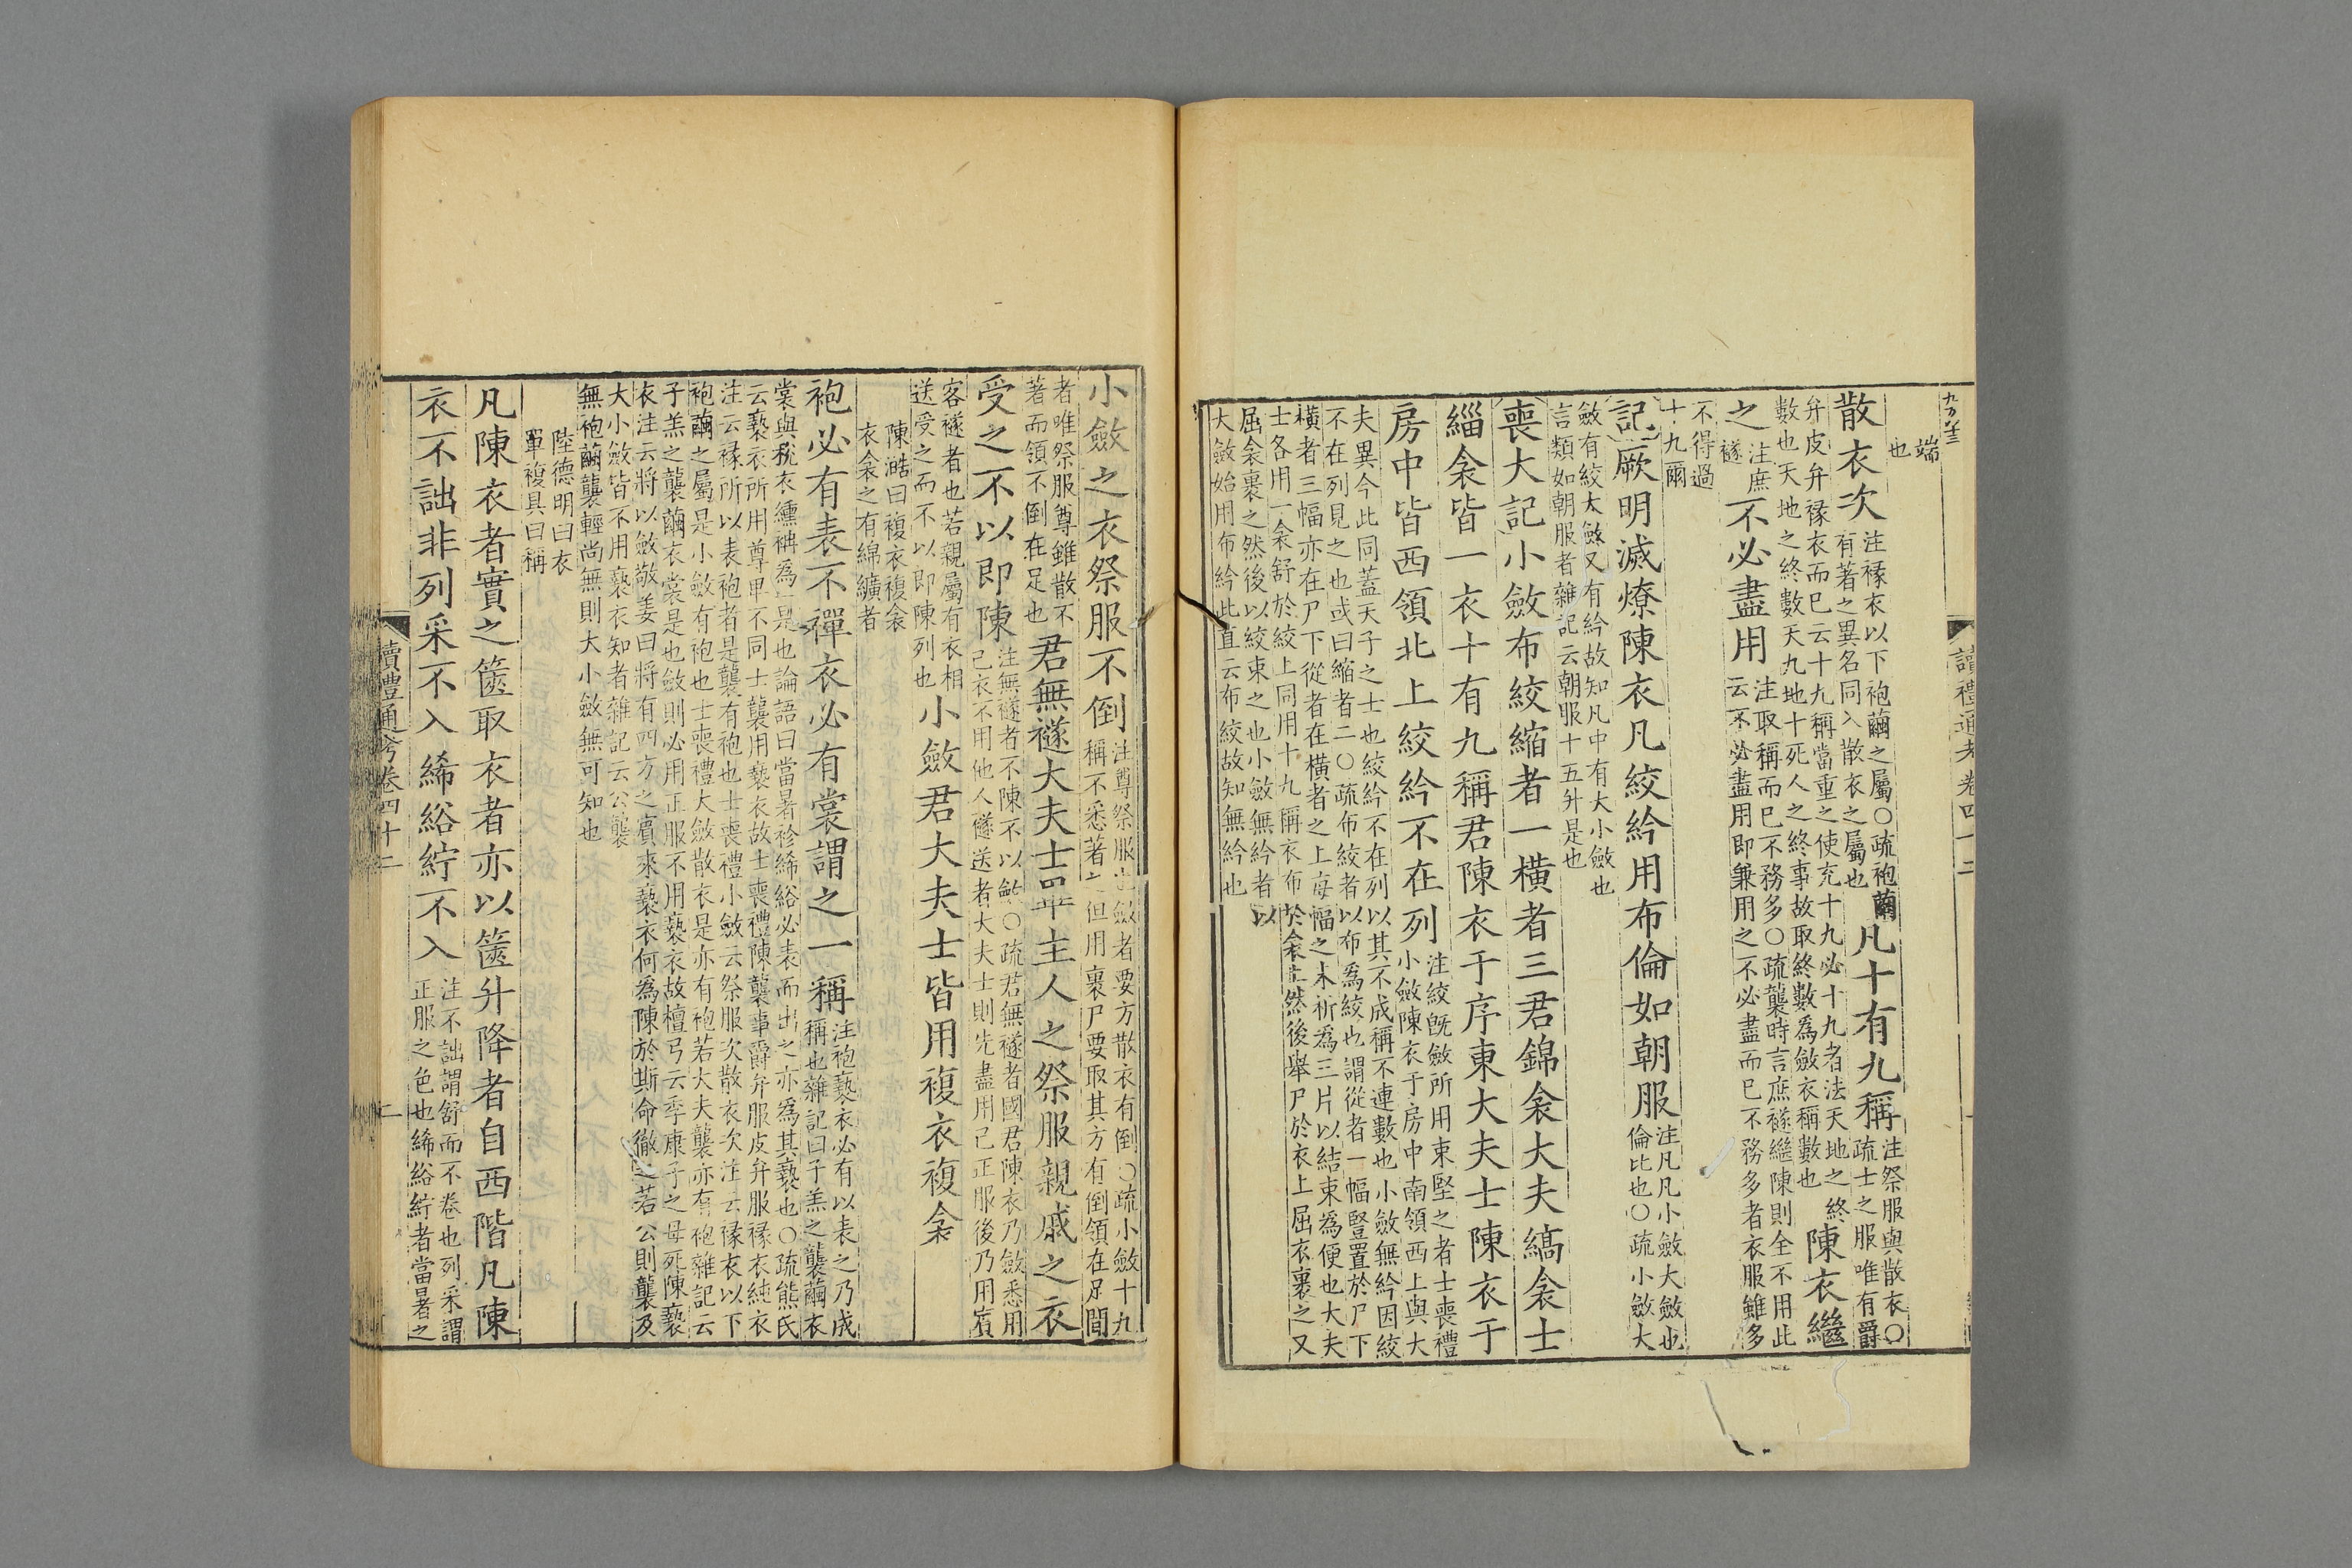 端
也
散衣次
注褖衣以下袍繭之屬○疏袍繭
有著之異名同入散衣之屬也
凡十有九稱
注祭服與散衣○
疏士之服唯有爵
弁皮弁褖衣而已云十九稱當重之使充十九必十九者法天地之終
數也天地之終數天九地十死人之終事故取終數為斂衣稱數也
陳衣繼
之
注庶
襚
不必盡用
注取稱而已不務多○疏襲時言庶襚繼陳則全不用此
云不必盡用即兼用之不必盡而已不務多者衣服雖多
不得過
十九爾
記厥明滅燎陳衣凡絞紟用布倫如朝服
注凡凡小斂大斂也
倫比也○疏小斂大
斂有絞大斂又有紟故知凡中有大小斂也
言類如朝服者雜記云朝服十五升是也
喪大記小斂布絞縮者一橫者三君錦衾大夫縞衾士
緇衾皆一衣十有九稱君陳衣于序東大夫士陳衣于
房中皆西領北上絞紟不在列
注絞既斂所用束堅之者士喪禮
小斂陳衣于房中南領西上與大
夫異今此同蓋天子之士也絞紟不在列以其不成稱不連數也小斂無紟因絞
不在列見之也或曰縮者二○疏布絞者以布為絞也謂從者一幅豎置於尸下
橫者三幅亦在尸下從者在橫者之上每幅之末析為三片以結束為便也大夫
士各用一衾舒於絞上同用十九稱衣布於衾上然後舉尸於衣上屈衣裹之又
屈衾裹之然後以絞束之也小斂無紟者以
大斂始用布紟此直云布絞故知無紟也
讀禮通考卷四十二
小斂之衣祭服不倒
注尊祭服也斂者要方散衣有倒○疏小斂十九
稱不悉著之但用裹尸要取其方有倒領在足間
者唯祭服尊雖散不
著而領不倒在足也
君無襚大夫士畢主人之祭服親戚之衣
受之不以即陳
注無襚者不陳不以斂○疏君無襚者國君陳衣乃斂悉用
己衣不用他人襚送者大夫士則先盡用己正服後乃用賓
客襚者也若親屬有衣相
送受之而不以即陳列也
小斂君大夫士皆用複衣複衾
陳澔曰複衣複衾
衣衾之有綿纊者
袍必有表不禪衣必有裳謂之一稱
注袍褻衣必有以表之乃成
稱也雜記曰子羔之襲繭衣
裳與稅衣纁袡為一是也論語曰當暑袗絺綌必表而出之亦為其褻也○疏熊氏
云褻衣所用尊卑不同士襲用褻衣故士喪禮陳襲事爵弁服皮弁服褖衣純衣
注云褖所以表袍者是襲有袍也士喪禮小斂云祭服次散衣次注云褖衣以下
袍繭之屬是小斂有袍也士喪禮大斂散衣是亦有袍若大夫襲亦有袍雜記云
子羔之襲繭衣裳是也斂則必用正服不用褻衣故檀弓云季康子之母死陳褻
衣注云將以斂敬姜曰將有四方之賓來褻衣何為陳於斯命徹之若公則襲及
大小斂皆不用褻衣知者雜記云公襲
無袍繭襲輕尚無則大小斂無可知也
陸德明曰衣
單複具曰稱
凡陳衣者實之篋取衣者亦以篋升降者自西階凡陳
衣不詘非列采不入絺綌紵不入
注不詘謂舒而不卷也列采謂
正服之色也絺綌紵者當暑之
讀禮通考卷四十二
二